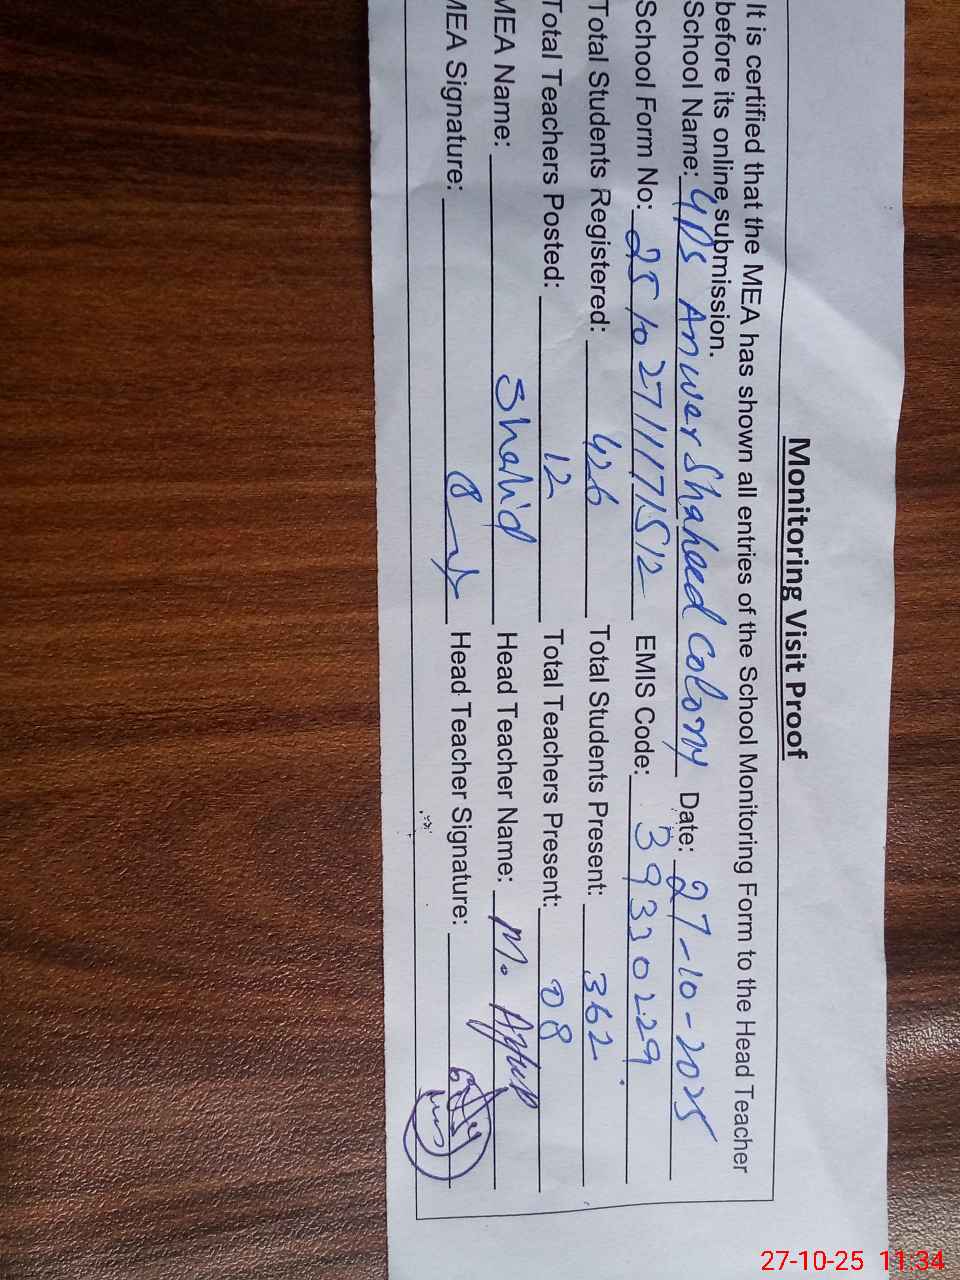 Monitoring Visit Proof
It is certified that the MEA has shown all entries of the School Monitoring Form to the Head Teacher
before its online submission.
School Name: GPS Anwer Shaheed Colony Date: 27-10-2025
School Form No: 25102711171512 EMIS Code: 39330229
Total Students Registered: 426 Total Students Present: 362
Total Teachers Posted: 12 Total Teachers Present: 08
MEA Name: Shahid Head Teacher Name: M. Ayub
MEA Signature: Head Teacher Signature:
27-10-25 11:34